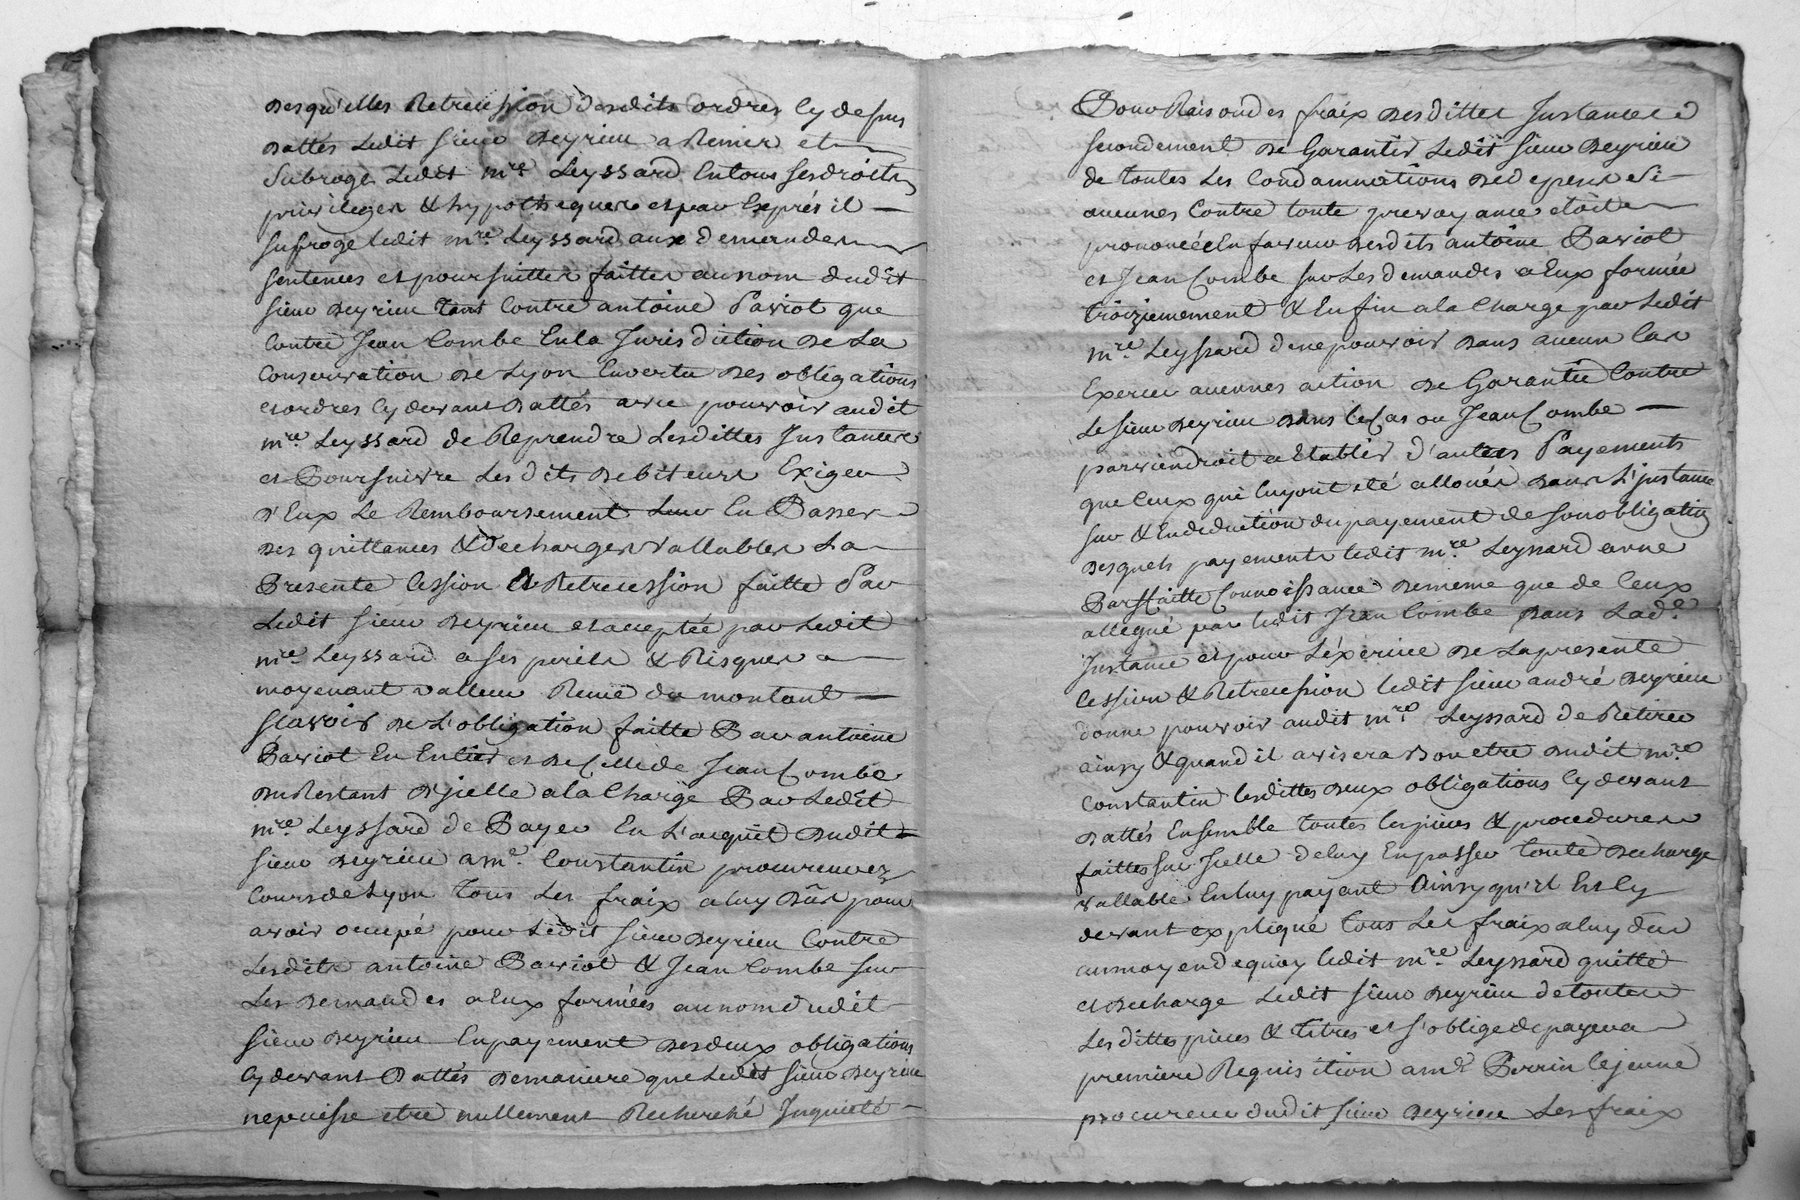 desquelles Retrocession desdits ordres Cy dessus
dattés Ledit Sieur deyrieu a Remis et
Subrogé Ledit mre Leyssard En tous ses droits
privileges & hypotheques et par Exprés il
subroge ledit mre Leyssard aux demandes
sentences et poursuittes faittes au nom dudit
Sieur deyrieu tant Contre antoine Pariot que
Contre Jean Combe En la Jurisdiction de La
Conservation de Lyon En vertu des obligations
et ordres Cy devant dattés avec pouvoir audit
mre Leyssard de Reprendre Lesdittes Instances
et Poursuivre Lesdits debiteurs Exiger
d'Eux Le Remboursement Leur En Passer
des quittances & decharges vallables La
Presente Cession & Retrocession faitte Par
Ledit Sieur deyrieu et acceptée par Ledit
mre Leyssard a ses perils & Risques
moyenant valleur Reçue du montant
scavoir de L'obligation faitte Par antoine
Pariot En Entier et de Celle de Jean Combe
du Restant d'jcelle a la Charge Par Ledit
mre Leyssard de Payer En L'acquit dudit
Sieur deyrieu a me Constantin procureur ez
Cours de Lyon tous Les fraix a luy dûs pour
avoir occupé pour Ledit Sieur deyrieu Contre
Lesdits antoine Pariot & Jean Combe sur
Les demandes a Eux formées au nom dudit
Sieur deyrieu En payement des deux obligations
Cy devant dattés de maniere que Ledit Sieur deyrieu
ne puisse etre nullement Recherché Inquieté
Pour Raison des fraix desdittes Instances
secondement de Garantir Ledit Sieur deyrieu
de toutes Les Condamnations de depens si
aucunes Contre toute prevoyance etoit
prononcée En faveur desdits antoine Pariot
et Jean Combe sur Les demandes a Eux formée
troiziemement & En fin a la Charge par Ledit
mre Leyssard de ne pouvoir dans aucun Cas
Exercer aucunes action de Garantie Contre
Le Sieur deyrieu dans le Cas ou Jean Combe
parviendroit a Etablir d'autres Payements
que Ceux qui luy ont eté alloués dans L'jnstance
sur & En deduction du payement de son obligation
desquels payements ledit mre Leyssard a une
Parffaitte Connoissance de meme que de Ceux
allegué par ledit Jean Combe dans Lade
Instance et pour L'éxercice de La presente
Cession & Retrocession ledit Sieur andré deyrieu
donne pouvoir audit mre Leyssard de Retirer
ainsy & quand il avisera Bon etre dudit mre
Constantin lesdittes deux obligations Cy devant
dattés Ensemble toutes les pieces & procedures
faittes sur Jcelle de luy En passer toute decharge
vallable En luy payant ainsy qu'il Est Cy
devant expliqué tous Les fraix a luy dus
au moyen de quoy ledit mre Leyssard quitte
et decharge Ledit Sieur deyrieu de toutes
Lesdittes pieces & titres et s'oblige de payer a
premiere Requisition a me Perrin lejeune
procureur dudit Sieur deyrieu Les fraix